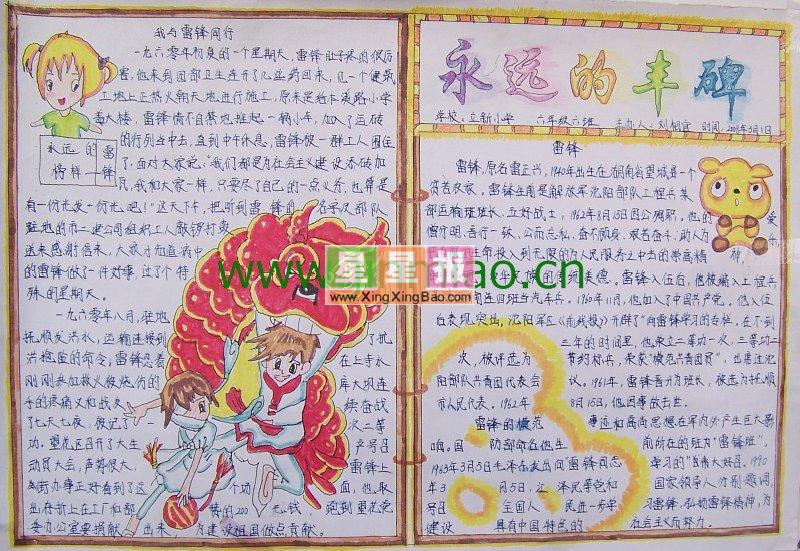 我与雷锋同行
一九六零年初夏的一个星期天，雷锋肚子疼的很厉
害，他来到团部卫生连开了几包药回来，见一个建筑
工地上正热火朝天地进行施工，原来是给本溪路小学
盖大楼，雷锋情不自禁地推起一辆小车，加入了运砖
的行列当中去，直到中午休息，雷锋被一群工人围住
了，面对大家说：“我们都是为社会主义建设添砖加
瓦，我和大家一样，只要尽了自己的一点义务，也算是
有一份光发一份光吧！”这天下午，把听到雷锋的名字及部队
驻地的市二建公司组织工人敲锣打鼓
送来感谢信来，大家才知道病中
的雷锋做了一件好事，过了个特
殊的星期天。
一九六零年八月，驻地
抚顺发洪水，运输连接到了抗
洪抢险的命令，雷锋忍着在上寺水
刚刚参加救火被烧伤的库大坝连
手的疼痛又和战友续奋战
了七天七夜，被记了一次二等
功。望花区召开了大生产号召
动员大会，声势很大，雷锋上
街办事正好看到了这个动面，他取
出存折上在工厂和部攒的200元钱，跑到望花党
委办公室要捐献出来，为建设祖国做点贡献。
永远的雷
榜样 锋
永远的丰碑
学校：立新小学 六年级六班 主办人：刘桐宜 时间：
雷锋
雷锋，原名雷正兴，1940年出生在湖南省望城县一个
贫苦农家，雷锋生前是解放军沈阳部队工程兵某
部运输班班长、五好战士，1962年8月15日因公殉职，他的
爱
憎分明、言行一致、公而忘私、奋不顾身、艰苦奋斗、助人为
神
生命投入到无限的为人民服务之中去的崇高精
美德。雷锋入伍后，他被编入工程兵
连四班当汽车兵。1960年11月，他加入了中国共产党，他入伍
后表现突出，沈阳军区《前线报》开辟了“向雷锋学习”的专栏，在不到
三年的时间里，他荣立二等功一次，三等功二
次，被评选为节约标兵，荣获“模范共青团员”，出席过沈
阳部队共青团代表会议。1961年，雷锋晋升为班长，被选为抚顺
市人民代表。1962年8月15日，他因事故去世。
雷锋的模范事迹和高尚思想在军内外产生巨大影
响，国防部命名他生前所在的班为“雷锋班”，
1963年3月5日毛泽东发出向“雷锋同志学习的”
国家领导人分别题词
号召全国人民进一步学习雷锋，弘扬雷锋精神，为
建设具有中国特色的社会主义而努力。
星星报
www.XingXingBao.com